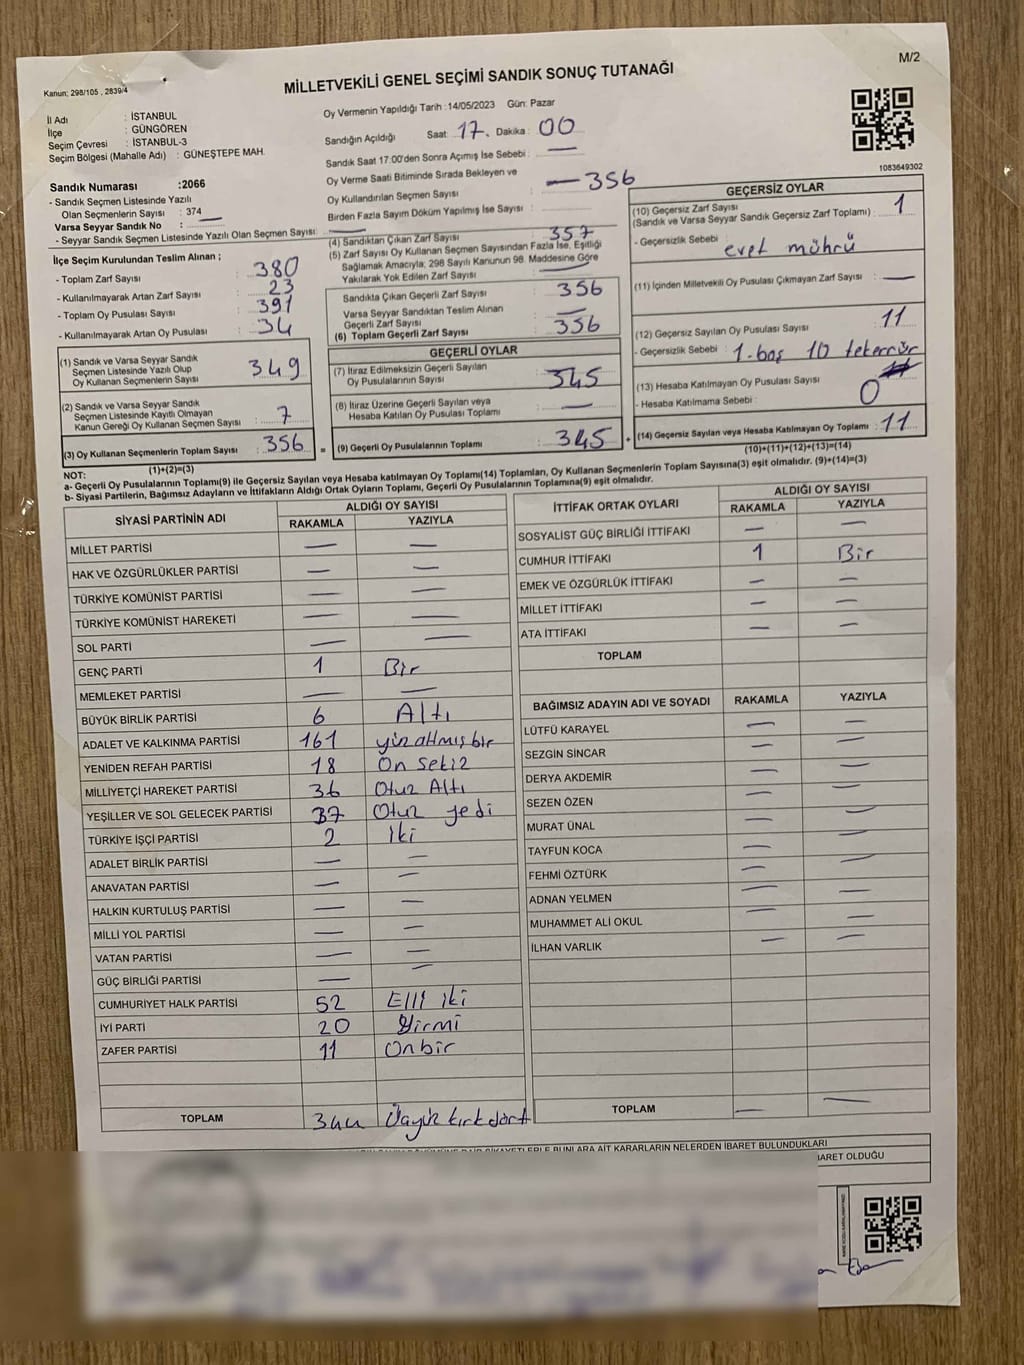 M/2
Kanun: 298/105 , 2839/4
MİLLETVEKİLİ GENEL SEÇİMİ SANDIK SONUÇ TUTANAĞI
İl Adı : İSTANBUL
İlçe : GÜNGÖREN
Seçim Çevresi : İSTANBUL-3
Seçim Bölgesi (Mahalle Adı) : GÜNEŞTEPE MAH.
Sandık Numarası :2066
- Sandık Seçmen Listesinde Yazılı
Olan Seçmenlerin Sayısı : 374
Varsa Seyyar Sandık No : —
- Seyyar Sandık Seçmen Listesinde Yazılı Olan Seçmen Sayısı: —
İlçe Seçim Kurulundan Teslim Alınan ;
- Toplam Zarf Sayısı : 380
- Kullanılmayarak Artan Zarf Sayısı : 23
- Toplam Oy Pusulası Sayısı : 391
- Kullanılmayarak Artan Oy Pusulası : 34
(1) Sandık ve Varsa Seyyar Sandık
Seçmen Listesinde Yazılı Olup
Oy Kullanan Seçmenlerin Sayısı : 349
(2) Sandık ve Varsa Seyyar Sandık
Seçmen Listesinde Kayıtlı Olmayan
Kanun Gereği Oy Kullanan Seçmen Sayısı : 7
(3) Oy Kullanan Seçmenlerin Toplam Sayısı : 356
(1)+(2)=(3)
Oy Vermenin Yapıldığı Tarih : 14/05/2023 Gün: Pazar
Sandığın Açıldığı Saat: 17. Dakika : 00
Sandık Saat 17:00'den Sonra Açımış İse Sebebi : —
Oy Verme Saati Bitiminde Sırada Bekleyen ve
Oy Kullandırılan Seçmen Sayısı : — 356
Birden Fazla Sayım Döküm Yapılmış İse Sayısı :
(4) Sandıktan Çıkan Zarf Sayısı : 357
(5) Zarf Sayısı Oy Kullanan Seçmen Sayısından Fazla İse, Eşitliği
Sağlamak Amacıyla; 298 Sayılı Kanunun 98. Maddesine Göre
Yakılarak Yok Edilen Zarf Sayısı : —
Sandıkta Çıkan Geçerli Zarf Sayısı : 356
Varsa Seyyar Sandıktan Teslim Alınan
Geçerli Zarf Sayısı : —
(6) Toplam Geçerli Zarf Sayısı : 356
GEÇERLİ OYLAR
(7) İtiraz Edilmeksizin Geçerli Sayılan
Oy Pusulalarının Sayısı : 345
(8) İtiraz Üzerine Geçerli Sayılan veya
Hesaba Katılan Oy Pusulası Toplamı : —
= (9) Geçerli Oy Pusulalarının Toplamı : 345 +
1083649302
GEÇERSİZ OYLAR
(10) Geçersiz Zarf Sayısı
(Sandık ve Varsa Seyyar Sandık Geçersiz Zarf Toplamı) : 1
- Geçersizlik Sebebi : evet mührü
(11) İçinden Milletvekili Oy Pusulası Çıkmayan Zarf Sayısı : —
(12) Geçersiz Sayılan Oy Pusulası Sayısı : 11
- Geçersizlik Sebebi : 1-boş 10 tekerrür
(13) Hesaba Katılmayan Oy Pusulası Sayısı : 0
- Hesaba Katılmama Sebebi :
(14) Geçersiz Sayılan veya Hesaba Katılmayan Oy Toplamı : 11
(10)+(11)+(12)+(13)=(14)
NOT:
a- Geçerli Oy Pusulalarının Toplamı(9) ile Geçersiz Sayılan veya Hesaba katılmayan Oy Toplamı(14) Toplamları, Oy Kullanan Seçmenlerin Toplam Sayısına(3) eşit olmalıdır. (9)+(14)=(3)
b- Siyasi Partilerin, Bağımsız Adayların ve İttifakların Aldığı Ortak Oyların Toplamı, Geçerli Oy Pusulalarının Toplamına(9) eşit olmalıdır.
SİYASİ PARTİNİN ADI ALDIĞI OY SAYISI
RAKAMLA YAZIYLA
MİLLET PARTİSİ — —
HAK VE ÖZGÜRLÜKLER PARTİSİ — —
TÜRKİYE KOMÜNİST PARTİSİ — —
TÜRKİYE KOMÜNİST HAREKETİ — —
SOL PARTİ — —
GENÇ PARTİ 1 Bir
MEMLEKET PARTİSİ — —
BÜYÜK BİRLİK PARTİSİ 6 Altı
ADALET VE KALKINMA PARTİSİ 161 yüz atmış bir
YENİDEN REFAH PARTİSİ 18 On sekiz
MİLLİYETÇİ HAREKET PARTİSİ 36 Otuz Altı
YEŞİLLER VE SOL GELECEK PARTİSİ 37 Otuz yedi
TÜRKİYE İŞÇİ PARTİSİ 2 İki
ADALET BİRLİK PARTİSİ — —
ANAVATAN PARTİSİ — —
HALKIN KURTULUŞ PARTİSİ — —
MİLLİ YOL PARTİSİ — —
VATAN PARTİSİ — —
GÜÇ BİRLİĞİ PARTİSİ — —
CUMHURİYET HALK PARTİSİ 52 Elli iki
İYİ PARTİ 20 Yirmi
ZAFER PARTİSİ 11 Onbir
TOPLAM 344 Üçyüz kırk dört
İTTİFAK ORTAK OYLARI ALDIĞI OY SAYISI
RAKAMLA YAZIYLA
SOSYALİST GÜÇ BİRLİĞİ İTTİFAKI — —
CUMHUR İTTİFAKI 1 Bir
EMEK VE ÖZGÜRLÜK İTTİFAKI — —
MİLLET İTTİFAKI — —
ATA İTTİFAKI — —
TOPLAM
BAĞIMSIZ ADAYIN ADI VE SOYADI RAKAMLA YAZIYLA
LÜTFÜ KARAYEL — —
SEZGİN SİNCAR — —
DERYA AKDEMİR — —
SEZEN ÖZEN — —
MURAT ÜNAL — —
TAYFUN KOCA — —
FEHMİ ÖZTÜRK — —
ADNAN YELMEN — —
MUHAMMET ALİ OKUL — —
İLHAN VARLIK — —
TOPLAM — —
BUNLARA AİT KARARLARIN NELERDEN İBARET BULUNDUKLARI
BARET OLDUĞU